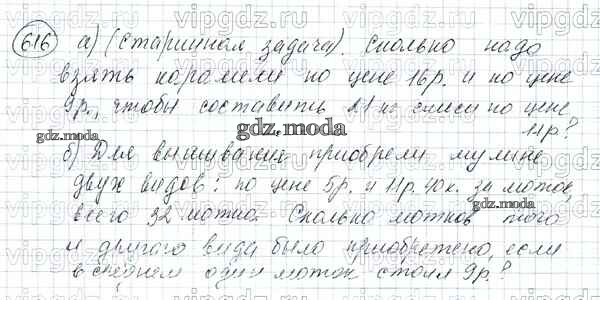 616 а) (Старинная задача). Сколько надо
взять карамели по цене 16р. и по цене
9р., чтобы составить 21 кг смеси по цене
11р?
б) Для вышивания приобрели мулине
двух видов: по цене 5р. и 11р. 40к. за моток,
всего 32 мотка. Сколько мотков того
и другого вида было приобретено, если
в среднем один моток стоил 9р.?
vipgdz.com
gdz.moda